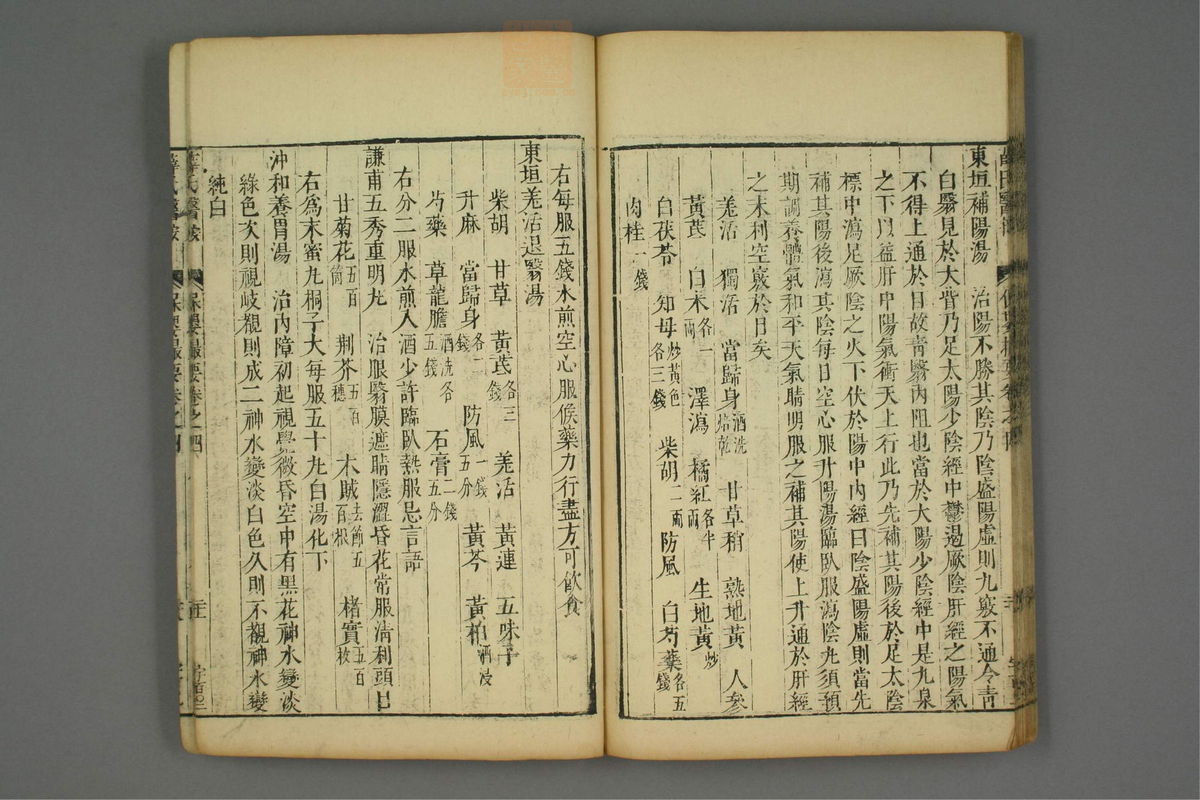 東垣補陽湯 治陽不勝其陰乃陰盛陽虛則九竅不通令青
白翳見於大眥乃足太陽少陰經中鬱遏厥陰肝經之陽氣
不得上通於目故靑翳內阻也當於大陽少陰經中是九泉
之下以益肝中陽氣衝天上行此乃先補其陽後於足太陰
標中瀉足厥陰之火下伏於陽中內經曰陰盛陽虛則當先
補其陽後瀉其陰每日空心服升陽湯臨臥服瀉陰丸須預
期調養體氣和平天氣晴明服之補其陽使上升通於肝經
之末利空竅於目矣
羌活 獨活 當歸身酒洗焙乾 甘草稍 熟地黃 人參
黃芪 白朮各一兩 澤瀉 橘紅各半兩 生地黃炒
白茯苓 知母炒黃色各三錢 柴胡二兩 防風 白芍藥各五錢
肉桂一錢
右每服五錢水煎空心服候藥力行盡方可飲食
東垣羌活退翳湯
柴胡 甘草 黃芪各三錢 羌活 黃連 五味子
升麻 當歸身各二錢 防風一錢五分 黃芩 黃柏酒浸
芍藥 草龍膽酒洗各五錢 石膏二錢五分
右分二服水煎入酒少許臨臥熱服忌言語
謙甫五秀重明丸 治眼翳膜遮睛隱澀昏花常服清利頭目
甘菊花五百箇 荆芥五百穗 木賊去節五百根 楮實五百枚
右爲末蜜丸桐子大每服五十丸白湯化下
沖和養胃湯 治內障初起視覺微昏空中有黑花神水變淡
綠色次則視歧覩則成二神水變淡白色久則不覩神水變
純白
薛氏醫案 保嬰撮要卷之四